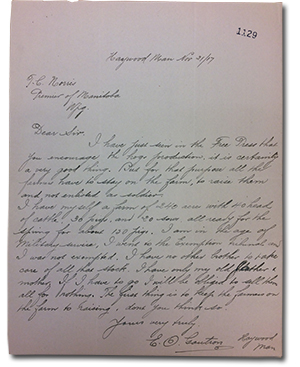 1129
Haywood Man Nov 21/17
T. C. Norris
Premier of Manitoba
Wpg
Dear Sir.
I have just seen in the Free Press that
you encourage the hog production, it is certainly
a very good thing. But for that purpose all the
farmers have to stay on the farm, to raise them
and not enlisted as soldier.
I have myself a farm of 240 acres with 40 head
of cattle, 30 pigs, and 20 sows all ready for the
spring for about 150 pigs. I am in the age of
Military service, I went to the Exemption Tribunal and
I was not exempted. I have no other brother to take
care of all that stock. I have only my old father &
mother. If I have to go I will be obliged to sell them
all for nothing. The first thing is to keep the farmers on
the farm to raising, dont you think so.
Yours very truly
E. Coutron
Haywood
Man